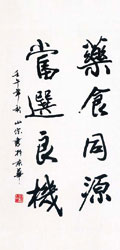 藥食同源
當選良機
壬午年秋